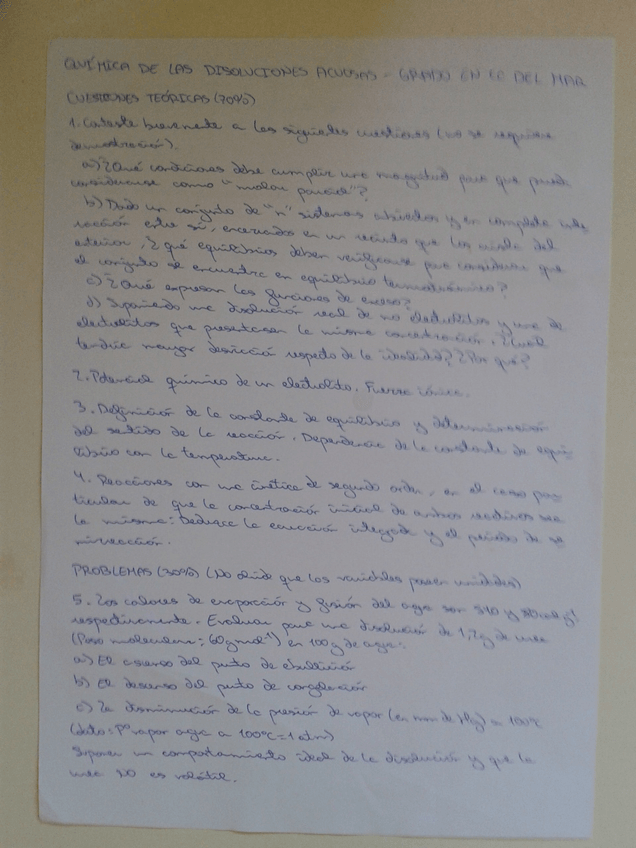 QUÍMICA DE LAS DISOLUCIONES ACUOSAS - GRADO EN CC DEL MAR
CUESTIONES TEÓRICAS (70%)
1. Conteste brevemente a las siguientes cuestiones (no se requiere
demostración).
a) ¿Qué condiciones debe cumplir una magnitud para que pueda
considerarse como "molar parcial"?
b) Dado un conjunto de "n" sistemas abiertos y en completa inte
racción entre sí, encerrados en un recinto que los aísla del
exterior, ¿qué equilibrios deben verificarse para considerar que
el conjunto se encuentra en equilibrio termodinámico?
c) ¿Qué expresan las funciones de exceso?
d) Suponiendo una disolución real de no electrolitos y una de
electrolitos que presentasen la misma concentración, ¿Cuál
tendría mayor desviación respecto de la idealidad? ¿Por qué?
2. Potencial químico de un electrolito. Fuerza iónica.
3. Definición de la constante de equilibrio y determinación
del sentido de la reacción. Dependencia de la constante de equi-
librio con la temperatura.
4. Reacciones con una cinética de segundo orden, en el caso par-
ticular de que la concentración inicial de ambos reactivos sea
la misma: Deduzca la ecuación integrada y el periodo de se
mirreacción.
PROBLEMAS (30%) (No olvide que las variables poseen unidades)
5. Los calores de evaporación y fusión del agua son 540 y 80 cal g⁻¹
respectivamente. Evaluar para una disolución de 1,2g de urea
(Peso molecular: 60 g mol⁻¹) en 100g de agua:
a) El ascenso del punto de ebullición
b) El descenso del punto de congelación
c) La disminución de la presión de vapor (en mm de Hg) a 100ºC
(dato: Pº vapor agua a 100ºC = 1 atm)
Suponer un comportamiento ideal de la disolución y que la
urea NO es volátil.